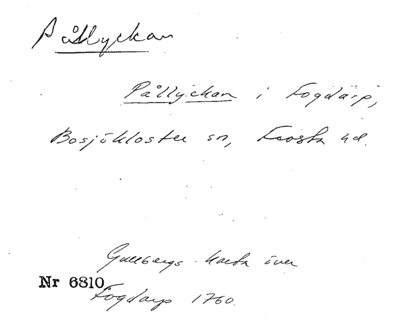 Pållyckan
Pållyckan i Fogdarp,
Bosjökloster sn, Frosta hd.
Gullbergs karta över
Nr 6810
Fogdarp 1760.